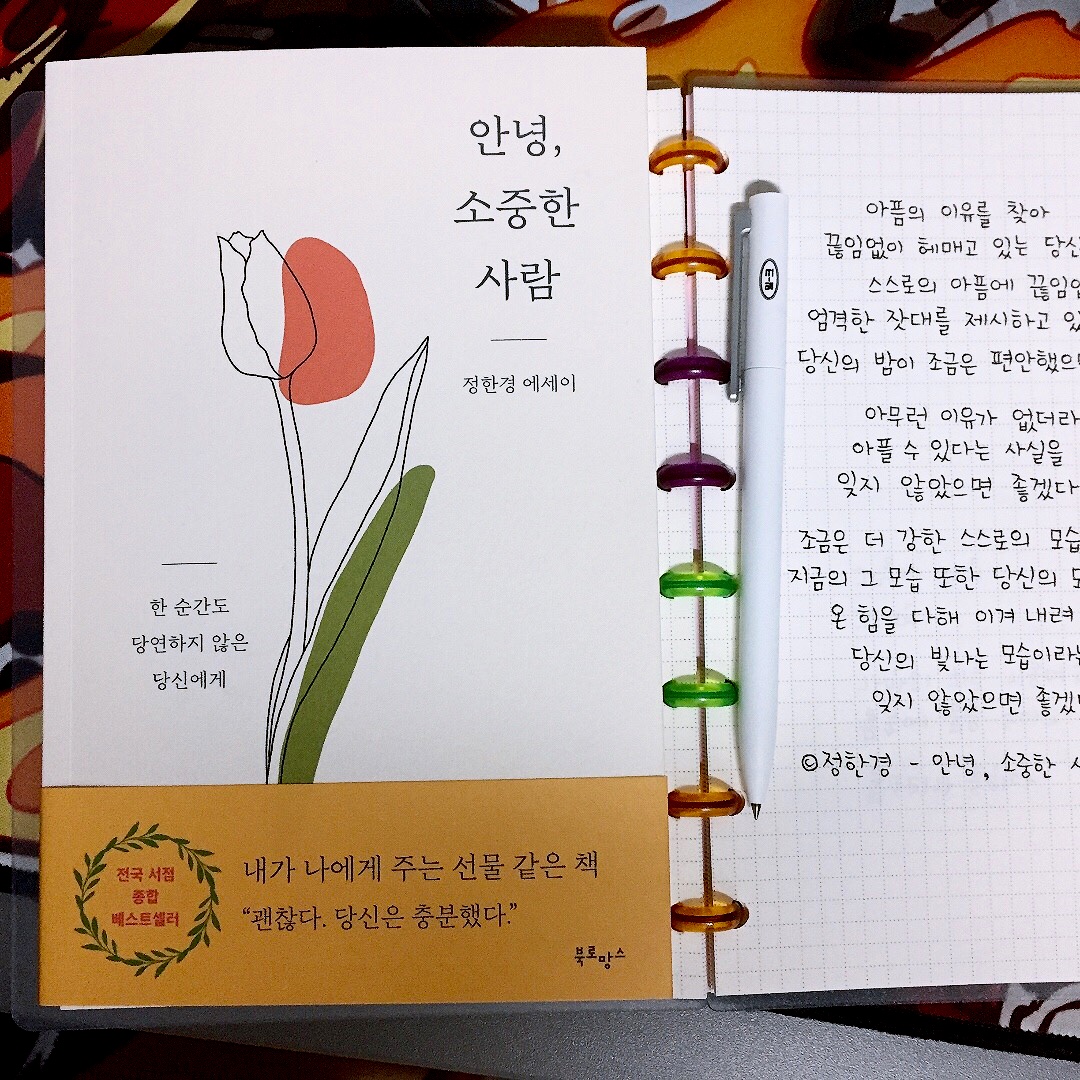 안녕,
소중한
사람
정한경 에세이
한 순간도
당연하지 않은
당신에게
전국 서점
종합
베스트셀러
내가 나에게 주는 선물 같은 책
“괜찮다. 당신은 충분했다.”
북로망스
아픔의 이유를 찾아
끊임없이 헤매고 있는
스스로의 아픔에
엄격한 잣대를 제시하고
당신의 밤이 조금은
아무런 이유가
아플 수 있다는 사실을
잊지 않았으면 좋겠다
조금은 더 강한 스스로의
지금의 그 모습 또한 당신의
온 힘을 다해 이겨 내려
당신의 빛나는
잊지 않았으면
©정한경 - 안녕, 소중한